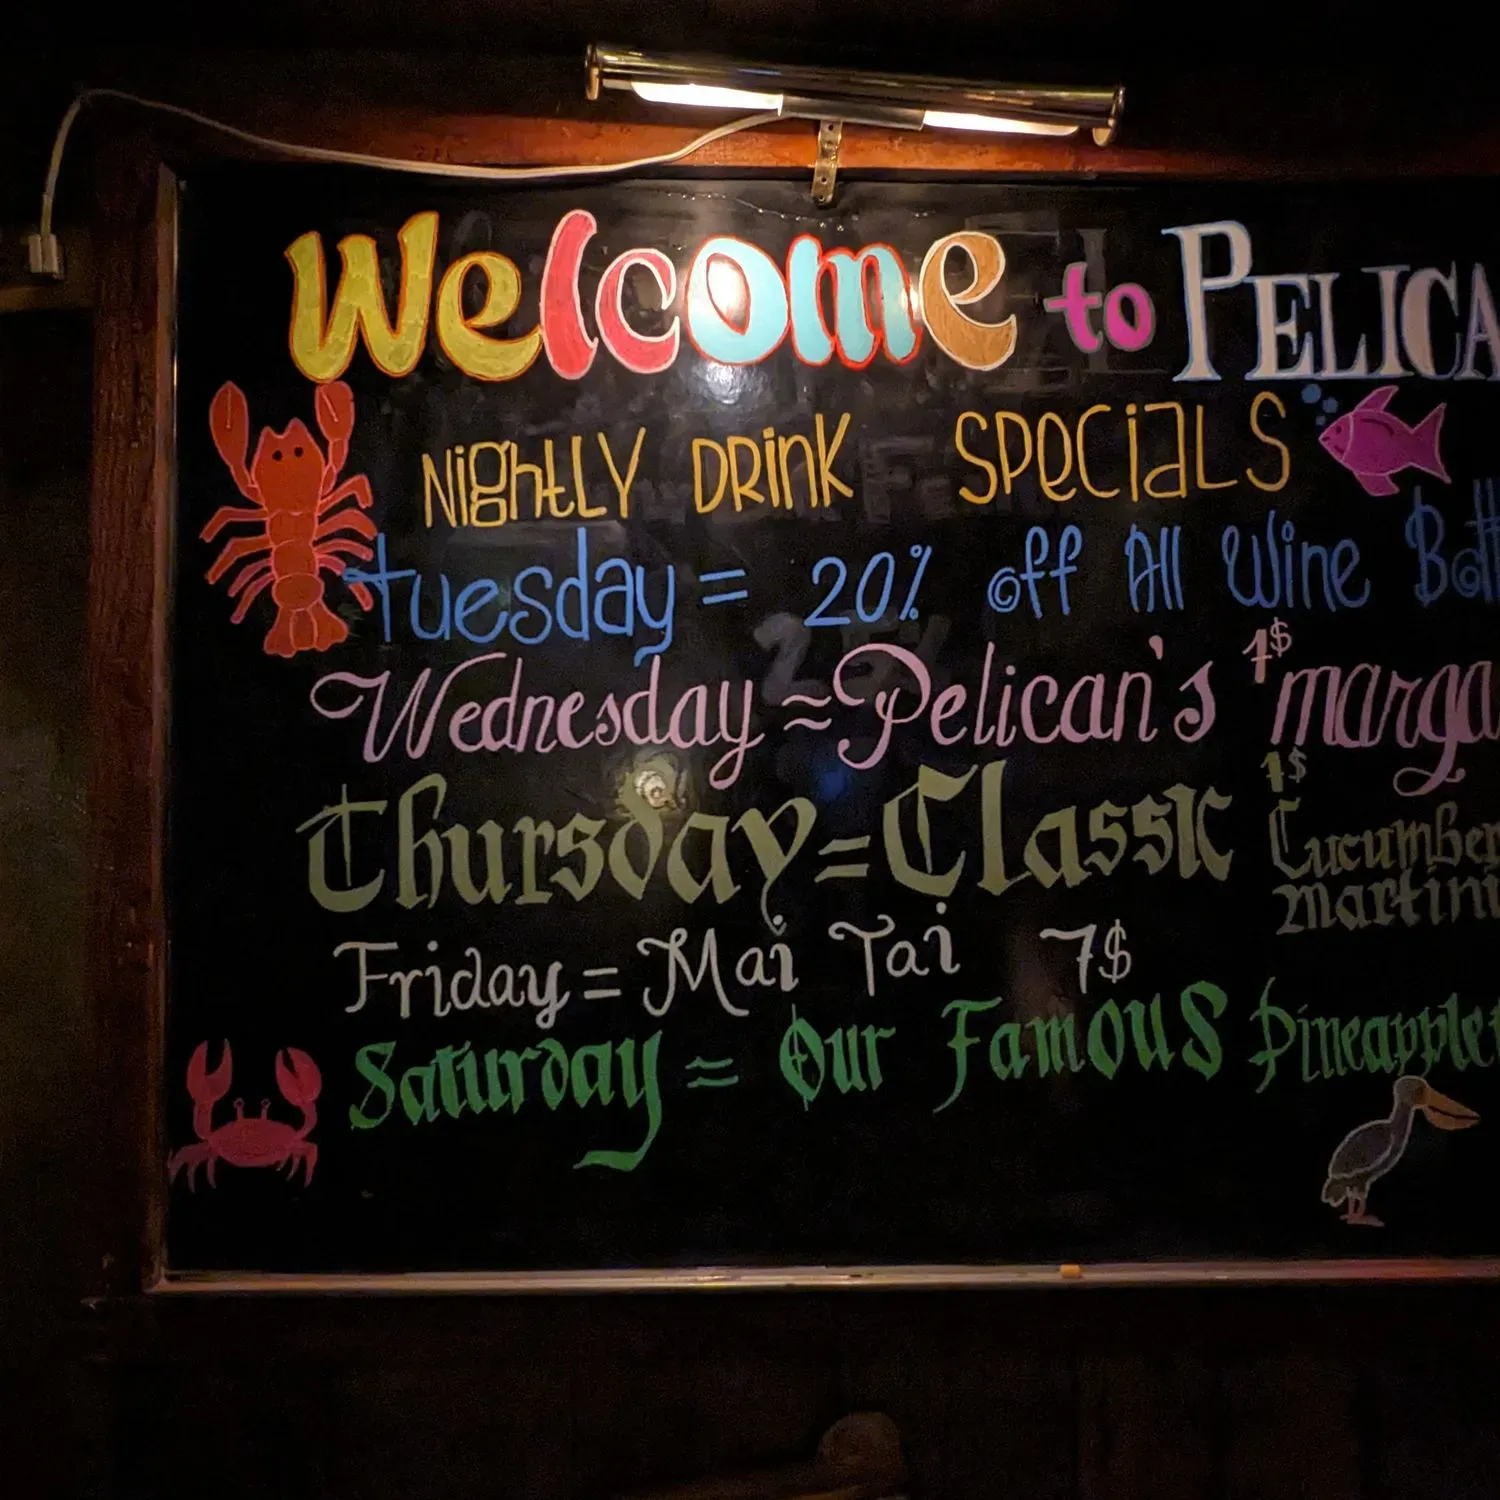 Welcome to PELICA
NighTLY DRinK SPECiaLS
tuesday = 20% off All Wine Bott
Wednesday ≈ Pelican's 1$ marga
Thursday = Classic 1$ Cucumber
martini
Friday = Mai Tai 7$
Saturday = Our Famous Pineapplet